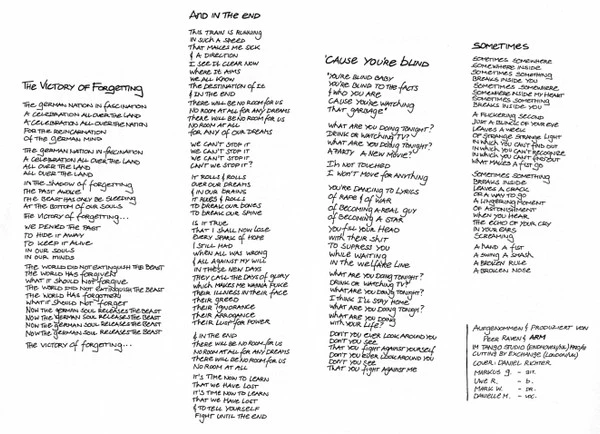 The Victory of Forgetting
The German Nation in fascination
A celebration all over the land
A celebration all over the nation
For the reincarnation
of the German mind
The German Nation in fascination
A celebration all over the land
All over the land
All over the land
In the shadow of forgetting
The past awoke
The beast has only be sleeping
At the bottom of our souls
The victory of forgetting...
We denied the past
To hide it away
To keep it alive
In our souls
In our minds
The world did not extinguish the beast
The world has forgiven
What it should not forgive
The world did not extinguish the beast
The world has forgotten
What it should not forget
Now the German soul releases the beast
Now the German soul releases the beast
Now the German soul releases the beast
Now the German soul releases the beast
The victory of forgetting...
And in the end
This train is running
In such a speed
That makes me sick
& a direction
I see it clear now
Where it aims
We all know
The destination of it
& in the end
There will be no room for us
No room at all for any dreams
There will be no room for us
No room at all
For any of our dreams
We can't stop it
We can't stop it
We can't stop it
Can't stop it?
It rolls & rolls
Over our dreams
& in our brains
It rules & rolls
To break our bones
To break our spine
Is it true
That I shall now lose
Every spark of hope
I still had
When all was wrong
& all against my will
In these new days
They call the days of glory
Which makes me wanna puke
Their illness in their face
Their greed
Their ignorance
Their arrogance
Their lust for power
& in the end
There will be no room for us
No room at all for any dreams
There will be no room for us
No room at all
It's time now to learn
That we have lost
It's time now to learn
That we have lost
& to tell yourself
Fight until the end
'Cause you're blind
You're blind baby
You're blind to the facts
& who you are
Cause you're watching
That garbage*
What are you doing tonight?
Drink or watching TV?
What are you doing tonight?
A party a new movie?
I'm not touched
I won't move for anything
You're dancing to lyrics
of rape & of war
of becoming a real guy
of becoming a star
You fill your head
With their shit
To supress you
While waiting
In the welfare line
What are you doing tonight?
Drink or watching TV?
What are you doing tonight?
I think I'll stay home
What are you doing tonight?
What are you doing
with your life?
Don't you ever look around you
Don't you see
That you fight against yourself
Don't you ever look around you
Don't you see
That you fight against me
Sometimes
Sometimes somewhere
Somewhere inside
Sometimes something
Breaks inside you
Sometimes somewhere
Somewhere inside my heart
Sometimes something
Breaks inside you
A flickering second
Just a blince of your eye
Leaves a week
of strange strange light
In which you can't find out
In which you can't recognize
In which you can't find out
What makes a fist go
Sometimes something
Breaks inside
Leaves a crack
or a way to go
A lingering moment
of astonishment
When you hear
The echo of your cry
In your ears
Screaming
A hand a fist
A swing a smash
A broken rule
A broken nose
Aufgenommen & produziert von
Peer Raven & ARM
im Tango Studio
Cutting by Exchange (London/UK)
Cover: Daniel Richter
Markus G. - Git.
Uwe R. - B.
Mark W. - Dr.
Danielle M. - Voc.